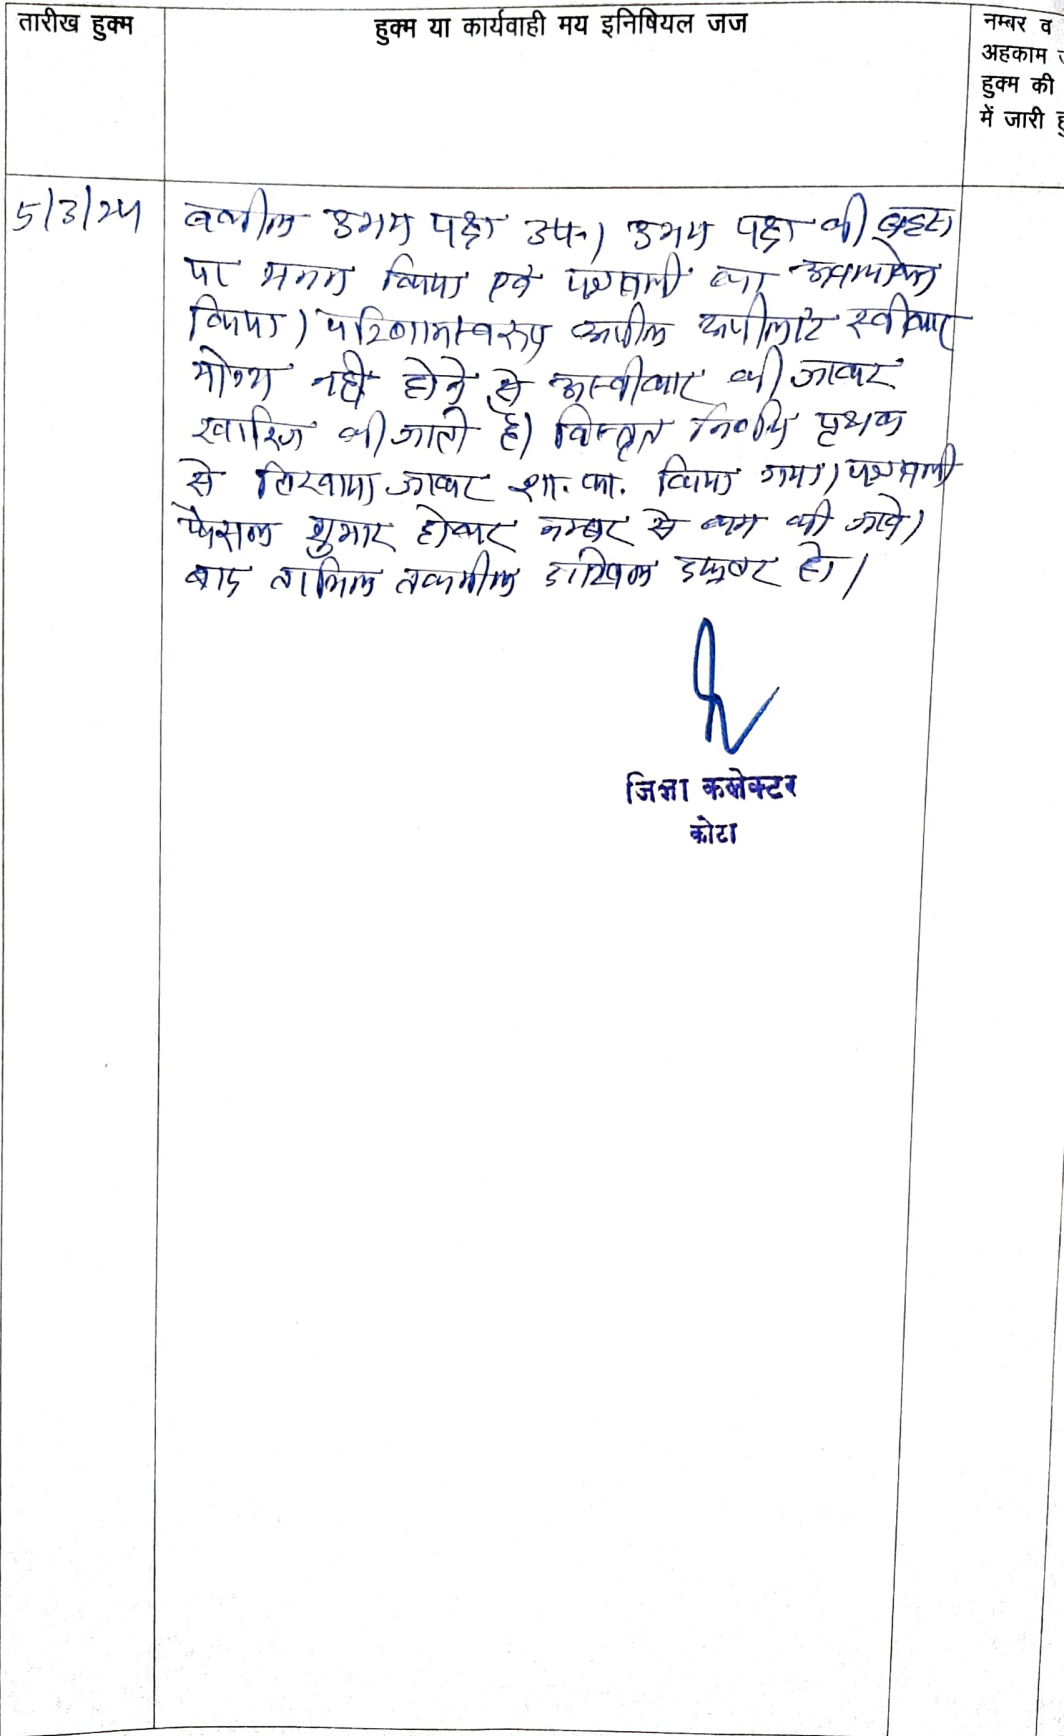 तारीख हुक्म
हुक्म या कार्यवाही मय इनिषियल जज
नम्बर व
अहकाम
हुक्म की
में जारी
5/3/24
वकील उभय पक्ष उप०। उभय पक्ष की बहस
पर मनन किया एवं पत्रावली का अवलोकन
किया। परिणामस्वरूप अपील अपीलांट स्वीकार
योग्य नही होने से अस्वीकार की जाकर
खारिज की जाती है। विस्तृत निर्णय पृथक
से लिखाया जाकर शा. का. किया गया। पत्रावली
फैसल शुमार होकर नम्बर से कम की जावे।
बाद तामिल तकमील दाखिल दफ्तर हो।
जिला कलेक्टर
कोटा